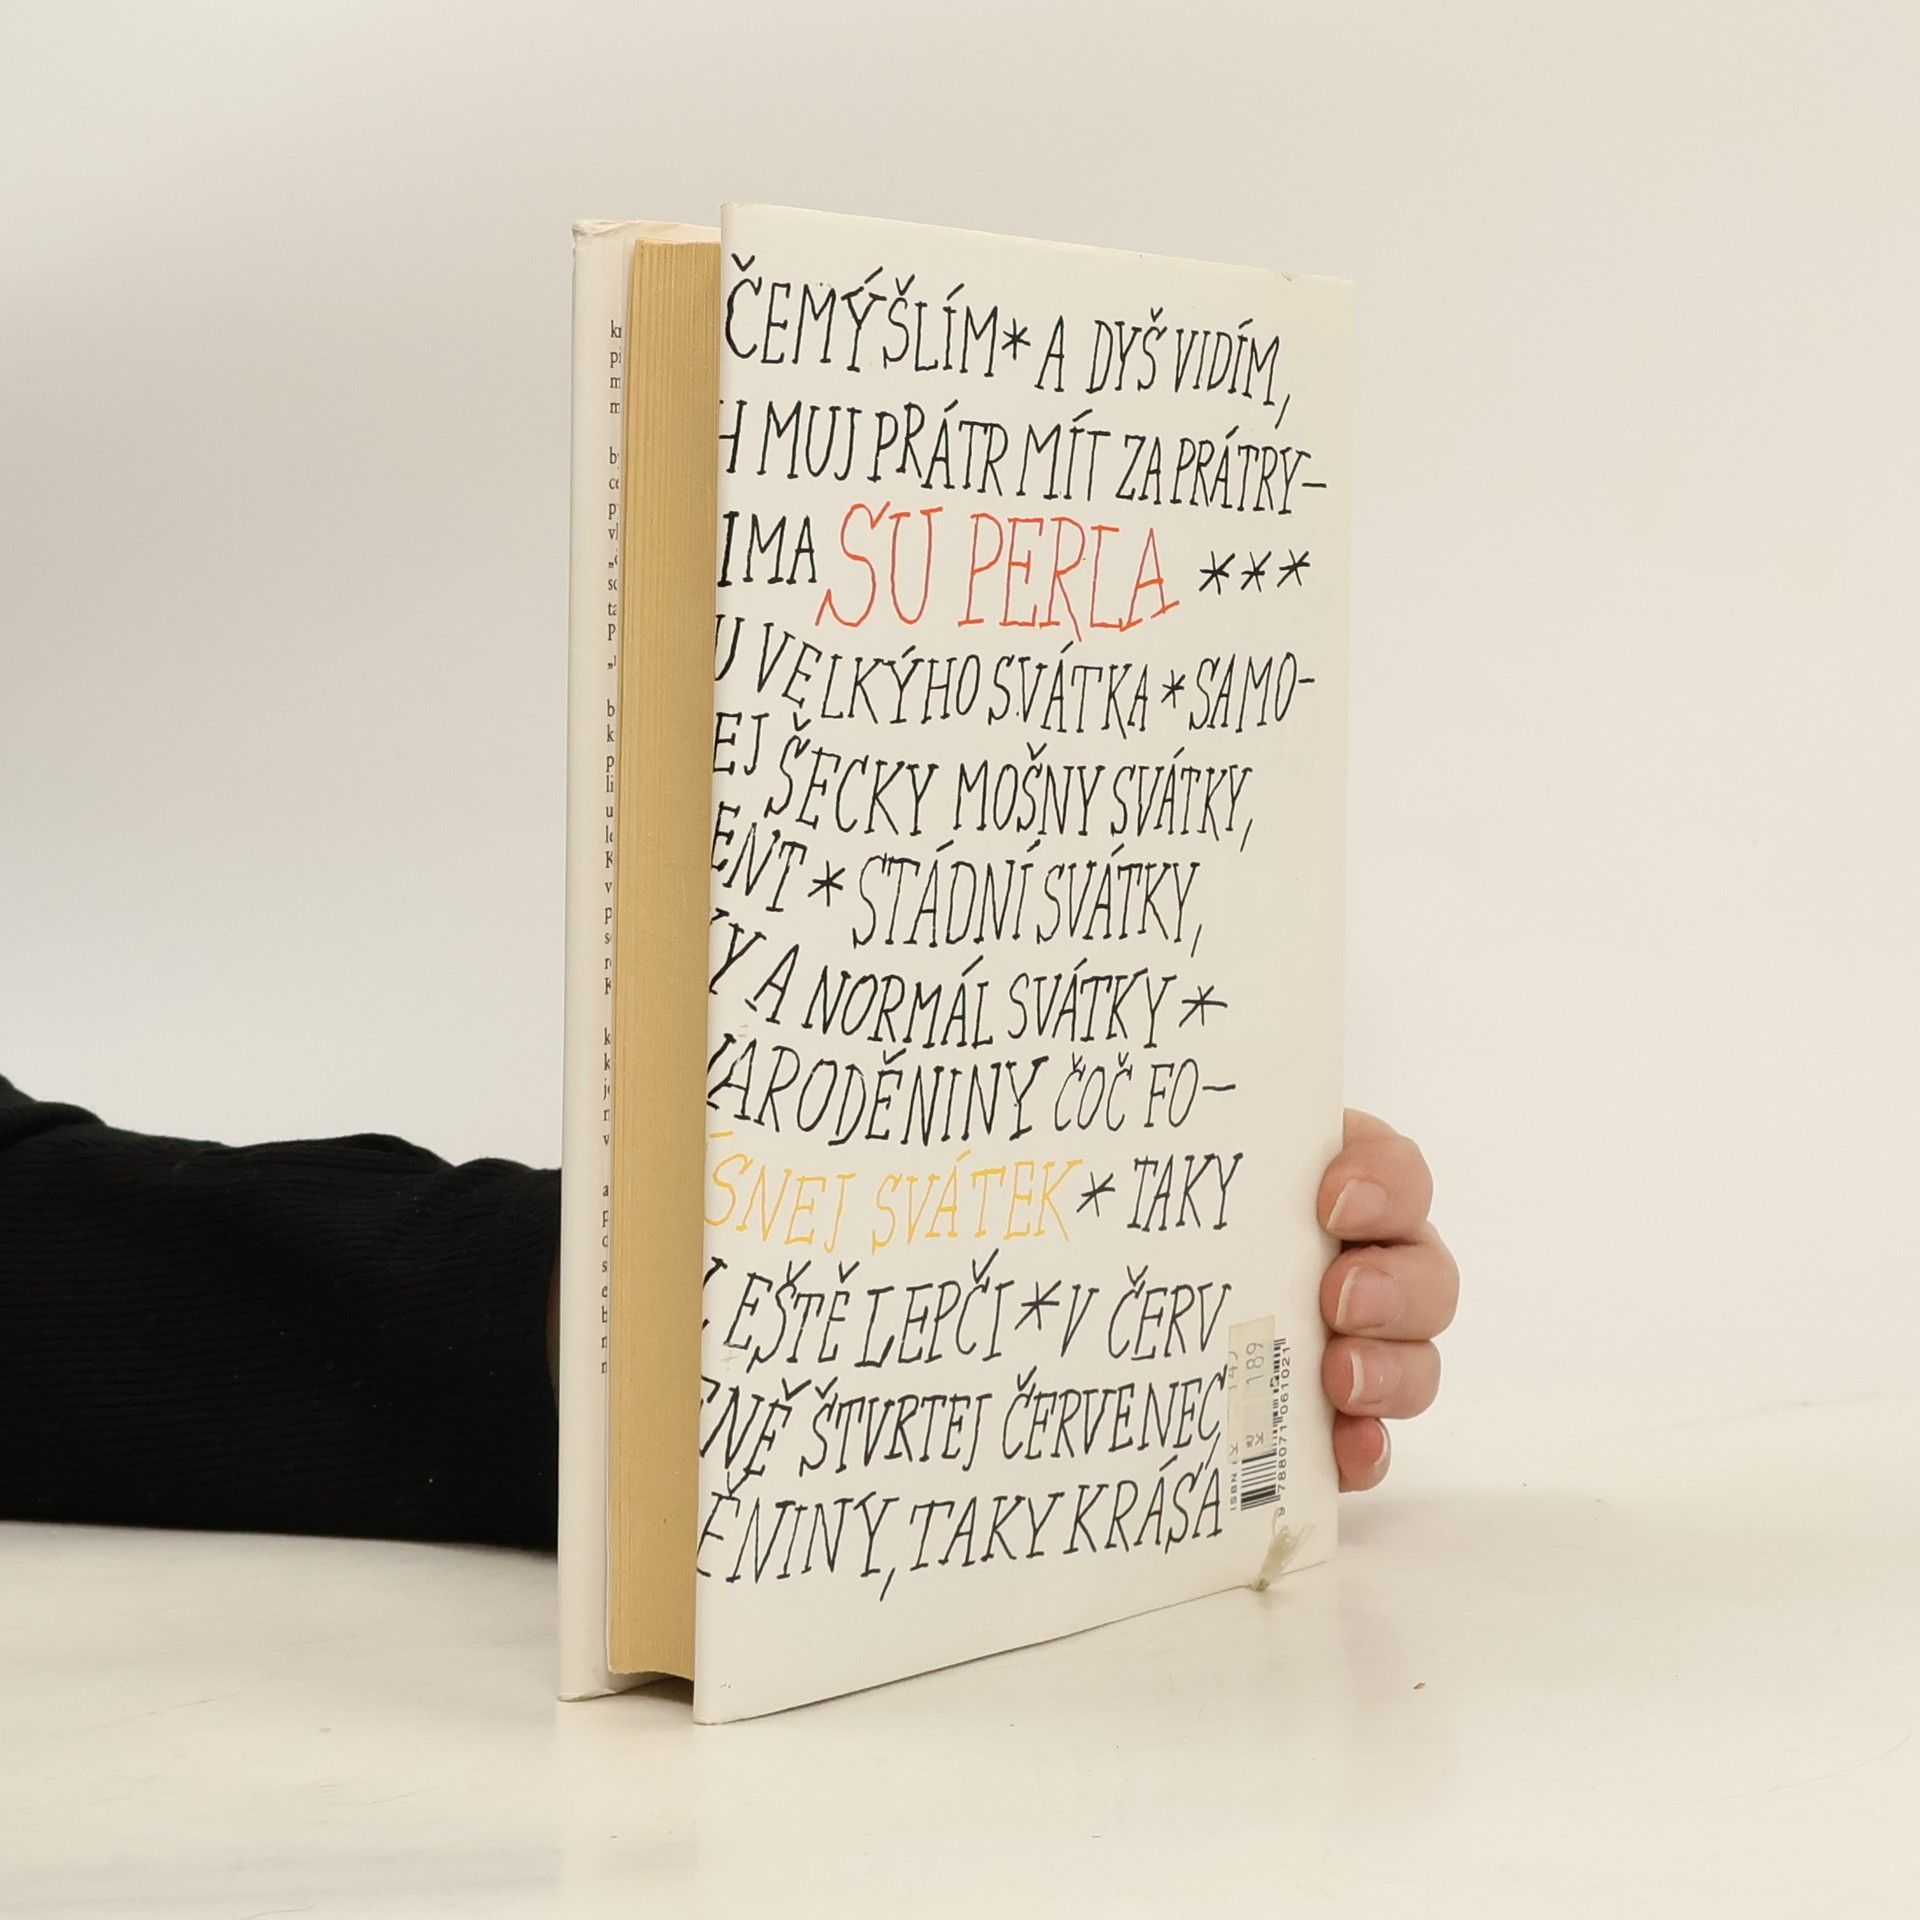 ČEMÝŠLÍM * A DYŠ VIDÍM,
H MUJ PRÁTR MÍT ZA PRÁTRY–
IMA SU PERLA ***
U VELKÝHO SVÁTKA * SAMO–
EJ ŠECKY MOŠNY SVÁTKY,
ENT * STÁDNÍ SVÁTKY,
KY A NORMÁL SVÁTKY *
NARODĚNINY ČOČ FO–
ŠNEJ SVÁTEK * TAKY
EŠTĚ LEPČI * V ČERV
ENĚ ŠTVRTEJ ČERVENEC,
ĚNINY, TAKY KRÁSA
ISBN
189
9 788071 061021